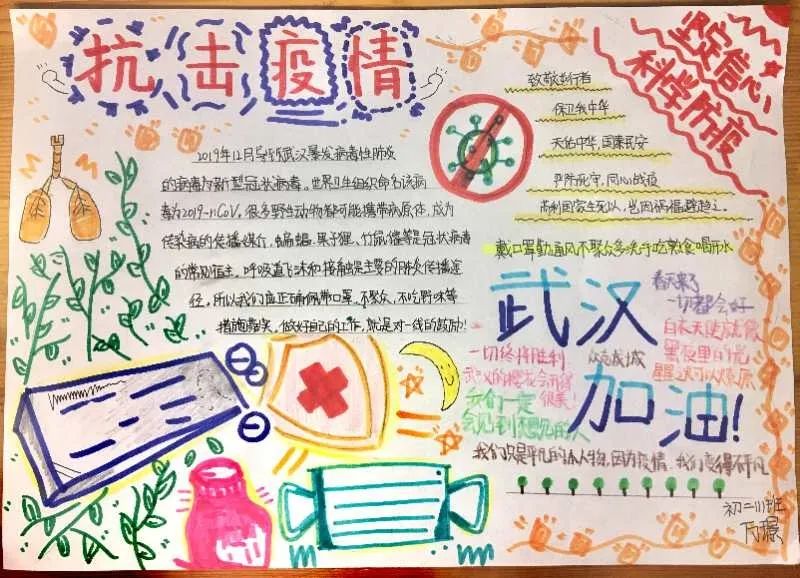 抗击疫情
坚定信心
科学防疫
2019年12月武汉暴发病毒性肺炎
的病毒为新型冠状病毒。世界卫生组织命名该病
毒为2019-nCoV。很多野生动物都可能携带病原体，成为
传染病的传播媒介，蝙蝠、果子狸、竹鼠、獾等是冠状病毒
的常见宿主，呼吸道飞沫和接触是主要的肺炎传播途
径，所以我们应正确佩带口罩、不聚众、不吃野味等
措施，做好自己的工作，就是对一线的鼓励！
致敬逆行者
保卫我中华
天佑中华，国泰民安
严阵死守，同心战疫
苟利国家生死以，岂因祸福避趋之。
戴口罩勤通风不聚众多洗手吃熟食喝开水
武汉
加油！
春天来了
一切都会好
白衣天使就像
黑夜里的光
星火可以燎原
众志成城
一切终将胜利
武汉的樱花会开得
很美！
我们一定
会见到想见的人
我们只是平凡的小人物，因为疫情，我们变得不平凡
初二(1)班